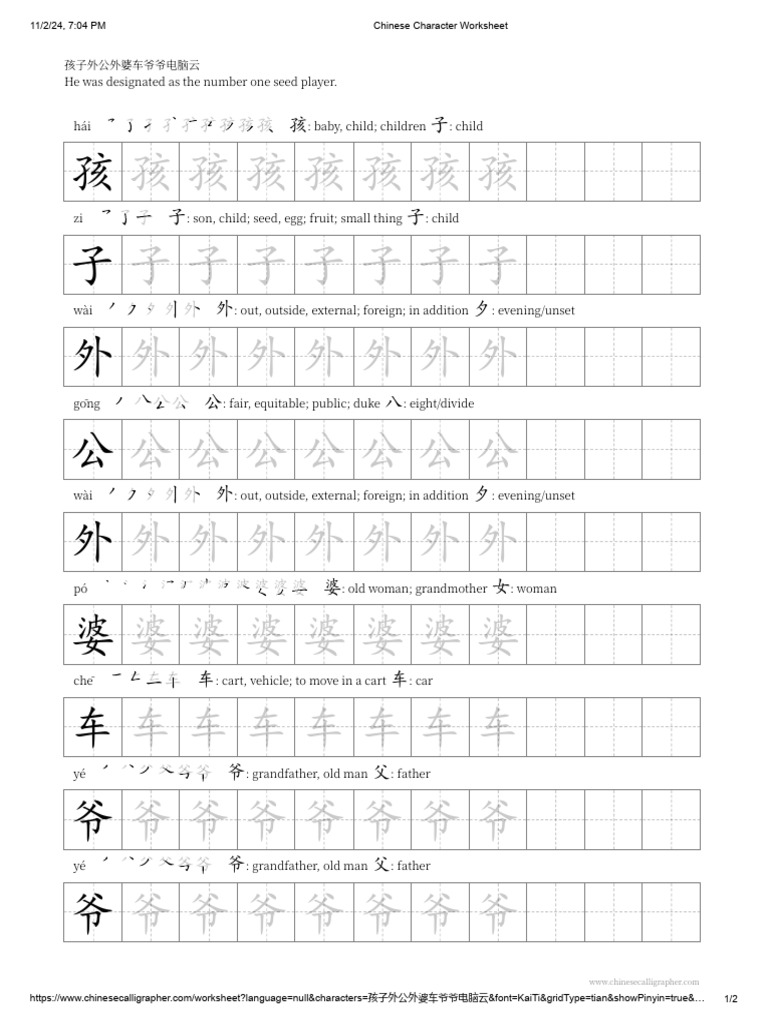 11/2/24, 7:04 PM Chinese Character Worksheet
孩子外公外婆车爷爷电脑云
He was designated as the number one seed player.
hái 孩: baby, child; children 子: child
孩 孩 孩 孩 孩 孩 孩 孩
zi 子: son, child; seed, egg; fruit; small thing 子: child
子 子 子 子 子 子 子 子
wài 外: out, outside, external; foreign; in addition 夕: evening/unset
外 外 外 外 外 外 外 外
gōng 公: fair, equitable; public; duke 八: eight/divide
公 公 公 公 公 公 公 公
wài 外: out, outside, external; foreign; in addition 夕: evening/unset
外 外 外 外 外 外 外 外
pó 婆: old woman; grandmother 女: woman
婆 婆 婆 婆 婆 婆 婆 婆
chē 车: cart, vehicle; to move in a cart 车: car
车 车 车 车 车 车 车 车
yé 爷: grandfather, old man 父: father
爷 爷 爷 爷 爷 爷 爷 爷
yé 爷: grandfather, old man 父: father
爷 爷 爷 爷 爷 爷 爷 爷
www.chinesecalligrapher.com
https://www.chinesecalligrapher.com/worksheet?language=null&characters=孩子外公外婆车爷爷电脑云&font=KaiTi&gridType=tian&showPinyin=true&… 1/2